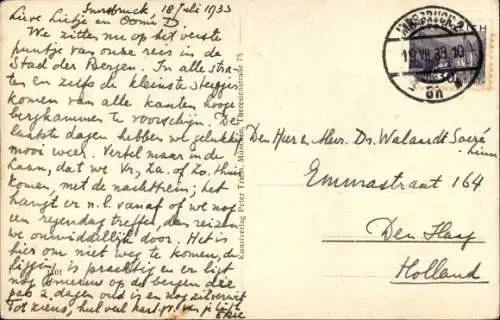 Innsbruck, 18 Juli 1933
Lieve Lietje en Oom D
We zitten nu op het verste
puntje van onze reis in de
Stad der Bergen. In alle stra-
ten en zelfs de kleinste steegjes
komen van alle kanten hooge
bergkammen te voorschijn. De
laatste dagen hebben we gelukkig
mooi weer. Vertel maar in de
Laan, dat we Vr., Za. of Zo. thuis
komen, met de nachttrein; het
hangt er n.l. vanaf of we nog
een regendag treffen, dan reizen
we onmiddellijk door. Het is
hier om niet weg te komen, de
ligging is prachtig en er ligt
nog sneeuw op de bergen die
pas 2 dagen oud is en nog zilverwit
Tot ziens, hul veel
Kunstverlag Peter München, Theresienstraße 75
INNSBRUCK 2
19.VII.33.10
Den Heer en Mevr. Dr. Walaardt Sacré
Emmastraat 164
Den Haag
Holland